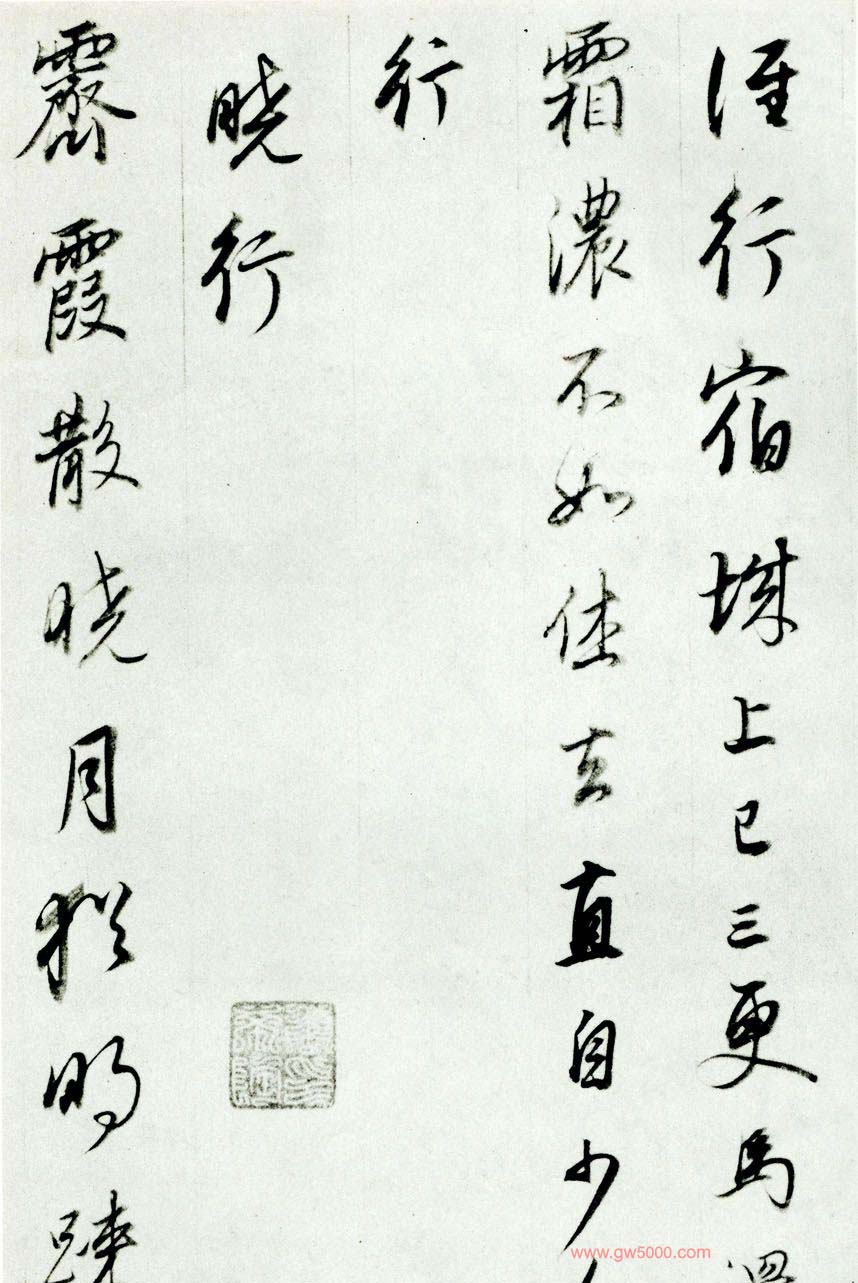 誰行宿城上已三更馬滑
霜濃不如休去直自少人
行
曉行
霽霞散曉月猶明疎
www.gw5000.com